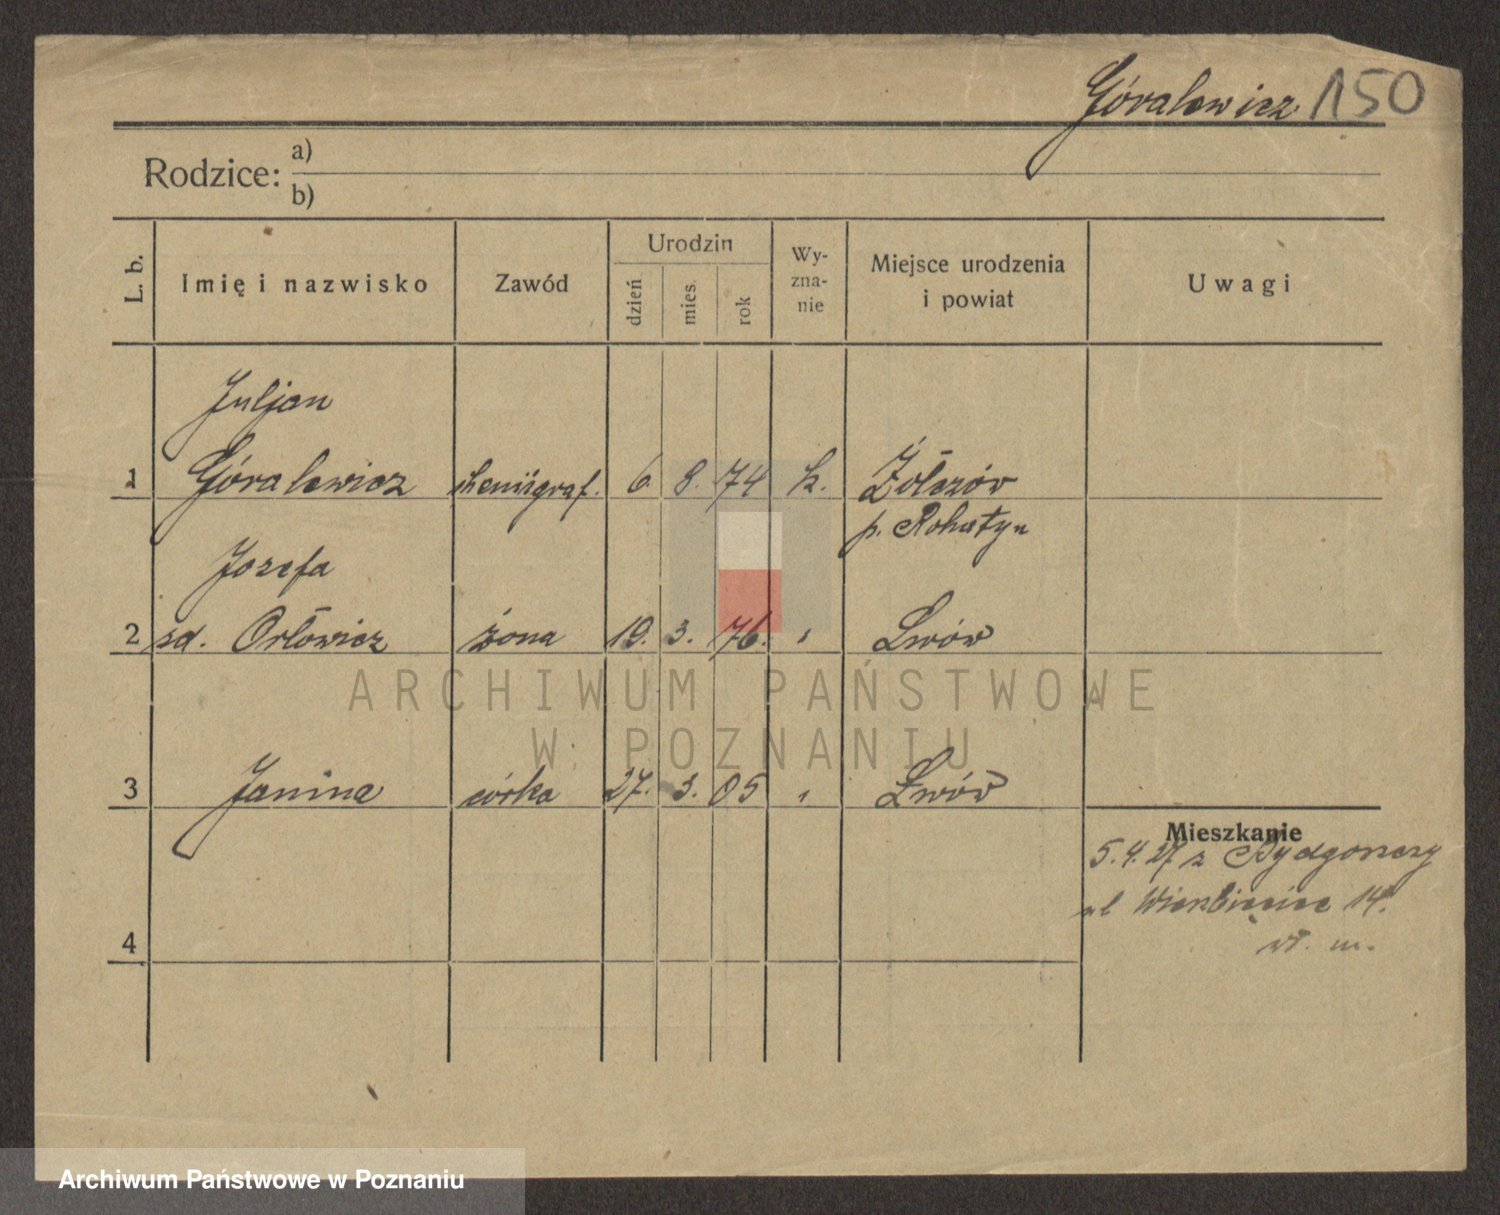 Góralewicz 150
Rodzice: a)
b)
L. b. Imię i nazwisko Zawód Urodzin dzień mies. rok Wy-zna-nie Miejsce urodzenia i powiat Uwagi
Juljan
1 Góralewicz chemigraf. 6. 8. 74 k. Żółczów
p. Rohatyn
Józefa
2 Orłowicz żona 19. 3. 76. " Lwów
3 Janina córka 27. 3. 05 " Lwów
Mieszkanie
5.4.27 z Bydgoszczy
ul Wierzbięcice 14.
4
wł. m.
ARCHIWUM PAŃSTWOWE
W POZNANIU
Archiwum Państwowe w Poznaniu